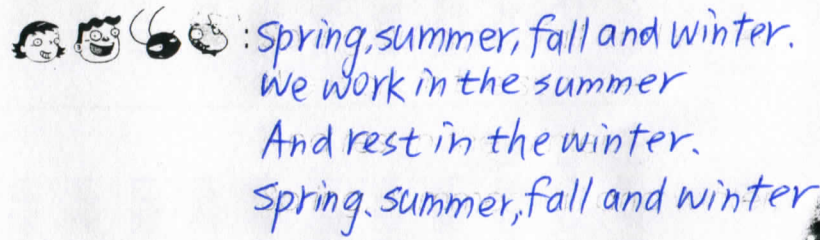 : Spring, summer, fall and winter.
We work in the summer
And rest in the winter.
Spring. summer, fall and winter